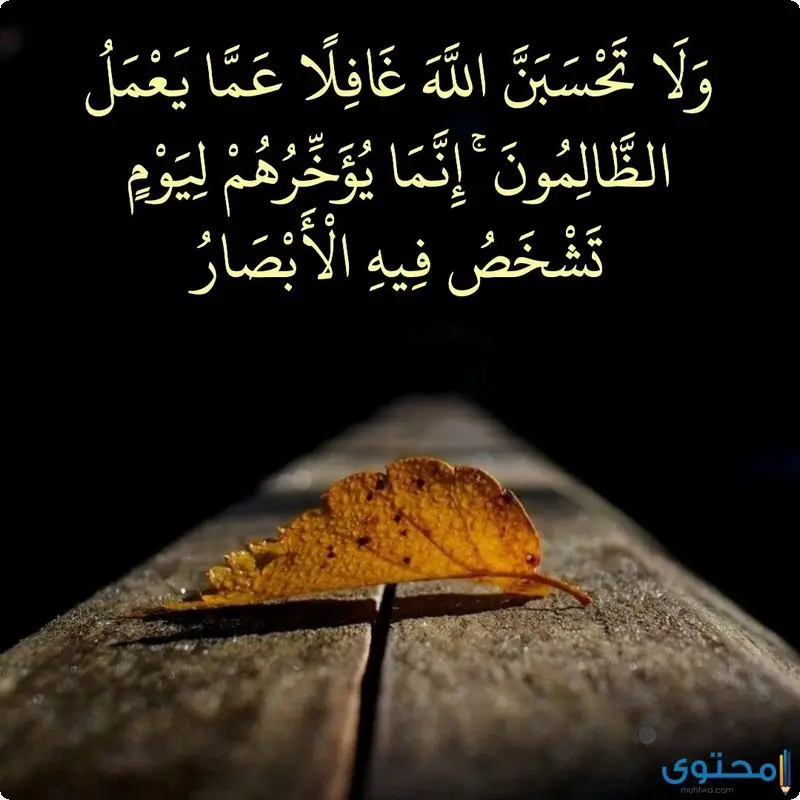 وَلَا تَحْسَبَنَّ اللَّهَ غَافِلًا عَمَّا يَعْمَلُ
الظَّالِمُونَ ۚ إِنَّمَا يُؤَخِّرُهُمْ لِيَوْمٍ
تَشْخَصُ فِيهِ الْأَبْصَارُ
محتوى
muhtwa.com